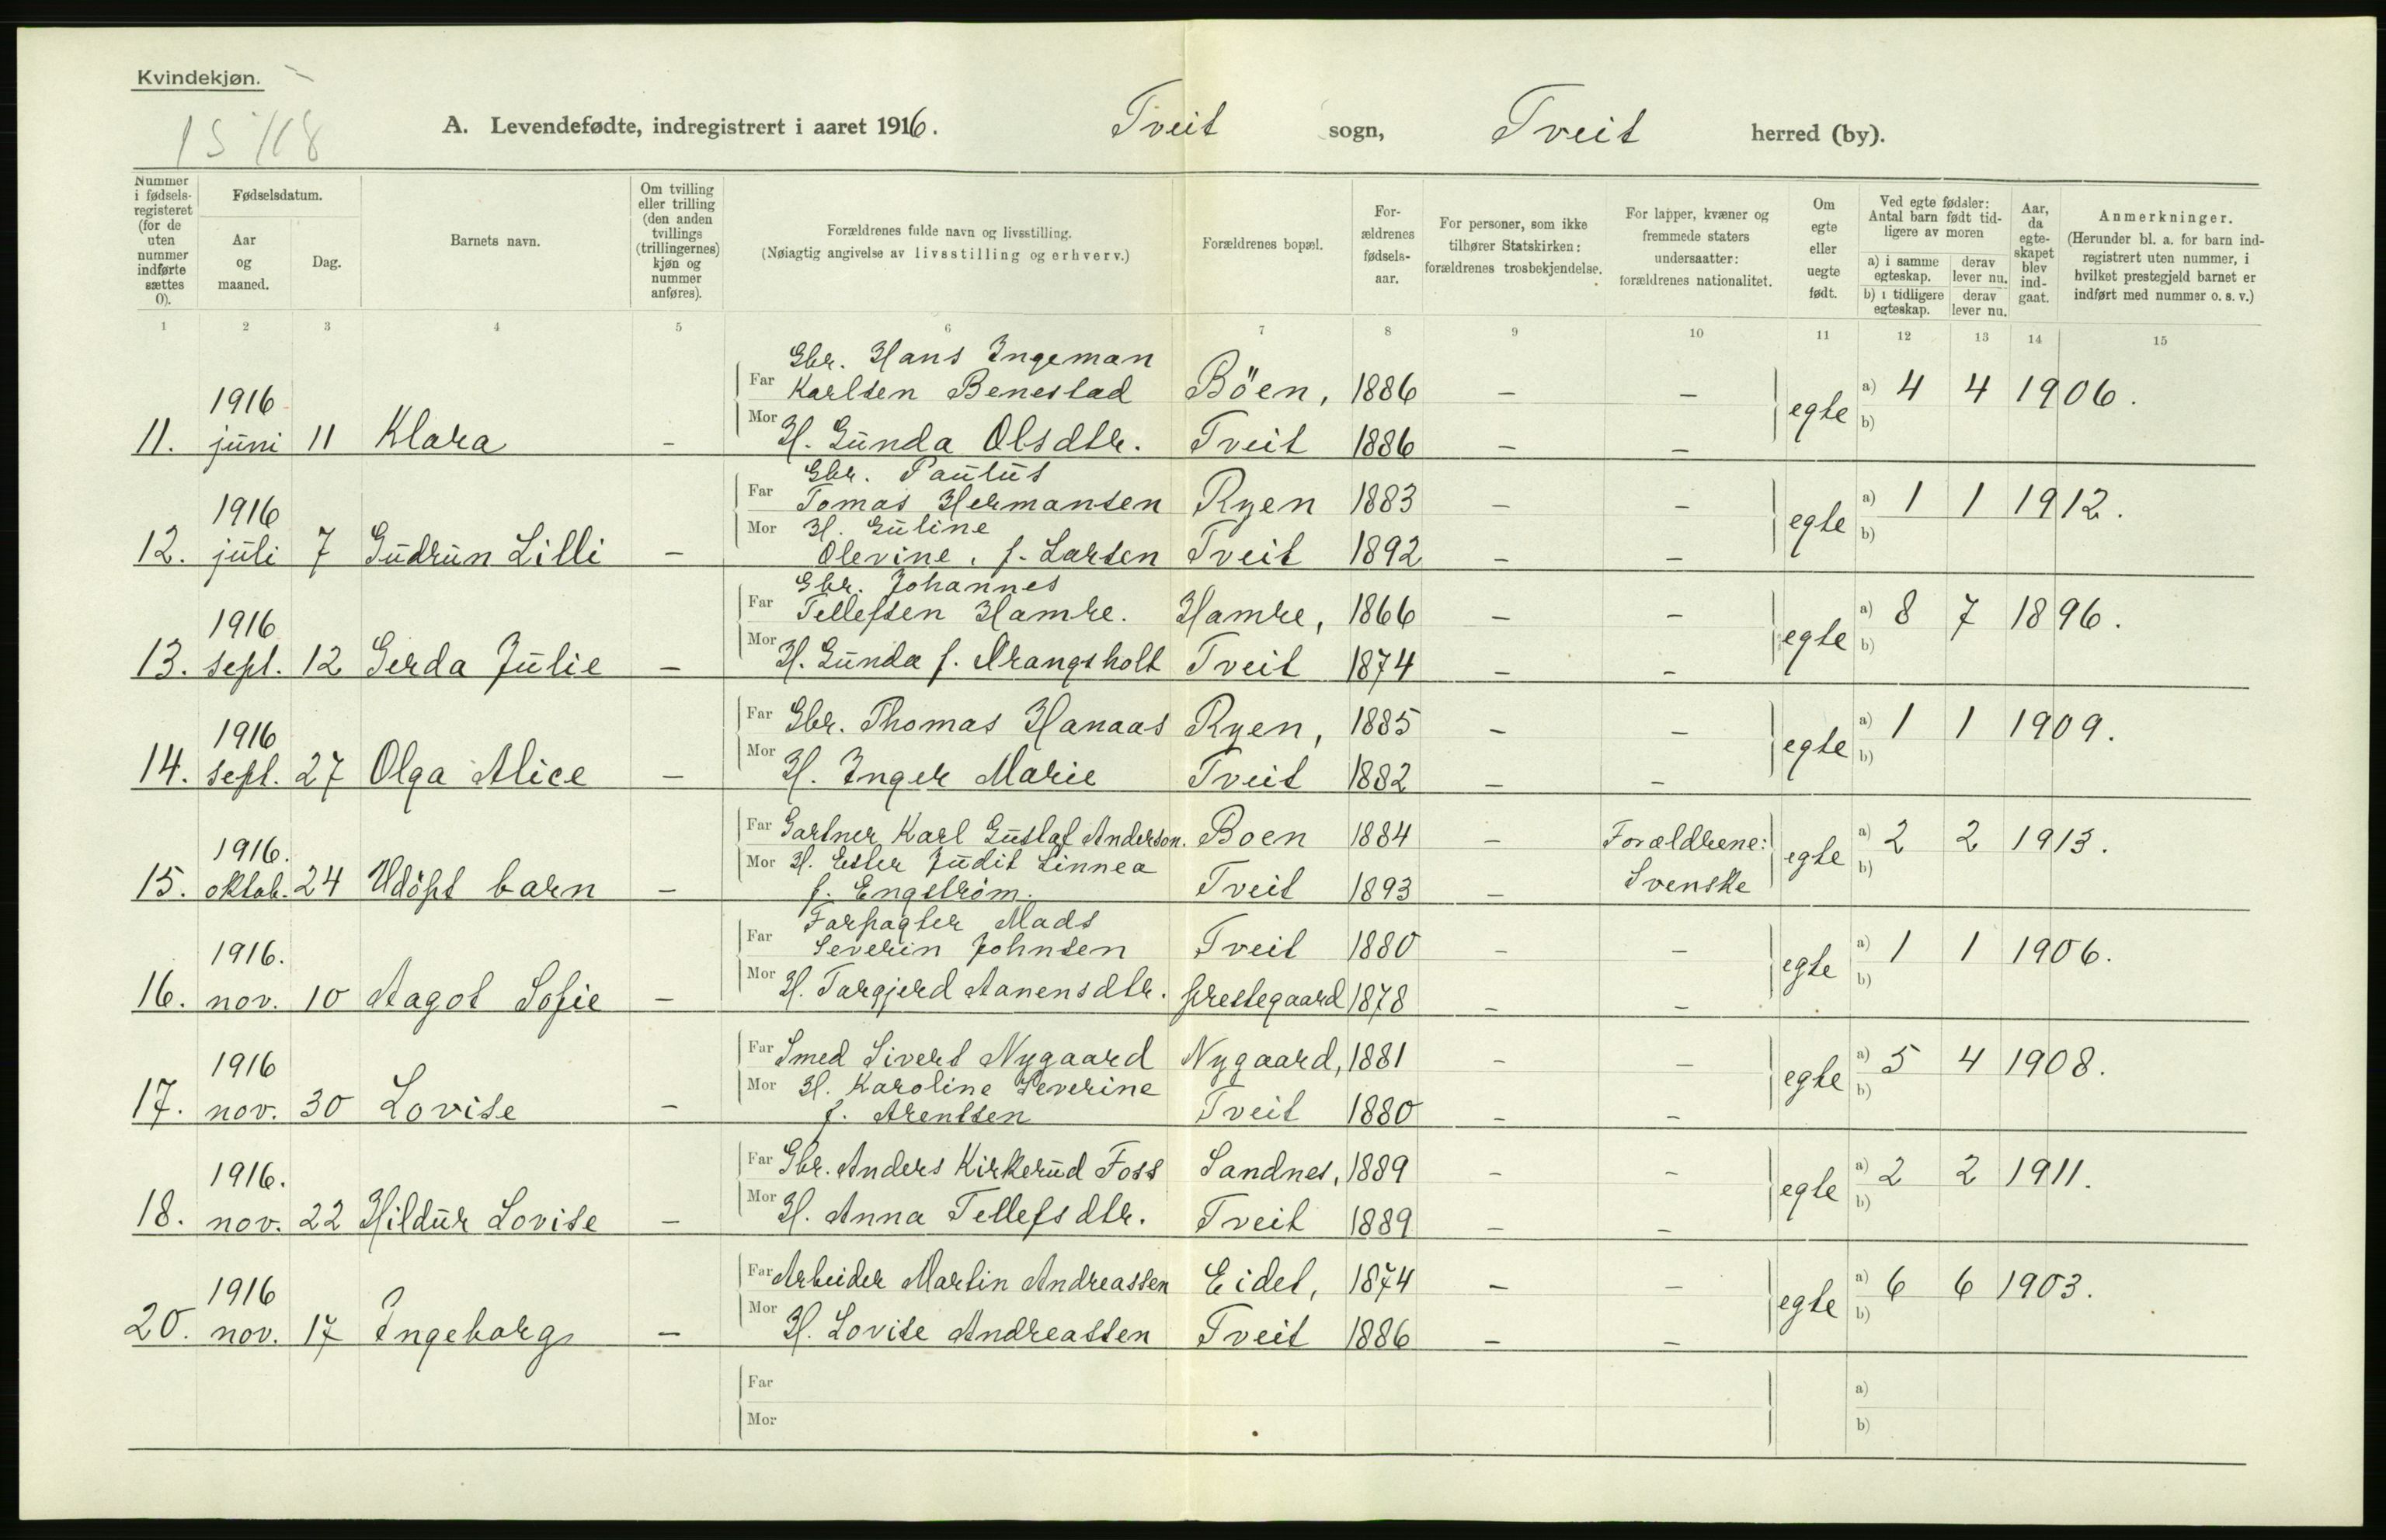 Kvindekjøn.
A. Levendefødte, indregistrert i aaret 1916. Tveit sogn, Tveit herred (by).
Nummer i fødsels-registeret (for de uten nummer indførte sættes 0).
Fødselsdatum.
Aar og maaned.
Dag.
Barnets navn.
Om tvilling eller trilling (den anden tvillings (trillingernes) kjøn og nummer anføres).
Forældrenes fulde navn og livsstilling.
(Nøiagtig angivelse av livsstilling og erhverv.)
Forældrenes bopæl.
For-ældrenes fødsels-aar.
For personer, som ikke tilhører Statskirken: forældrenes trosbekjendelse.
For lapper, kvæner og fremmede staters undersaatter: forældrenes nationalitet.
Om egte eller uegte født.
Ved egte fødsler: Antal barn født tid-ligere av moren
a) i samme egteskap. derav lever nu.
b) i tidligere egteskap. derav lever nu.
Aar, da egte-skapet blev ind-gaat.
Anmerkninger.
(Herunder bl. a. for barn ind-registrert uten nummer, i hvilket prestegjeld barnet er indført med nummer o. s. v.)
1 2 3 4 5 6 7 8 9 10 11 12 13 14 15
Gbr. Hans Ingeman
1916 Far Karlsen Benestad Böen, 1886 - - egte a) 4 4 1906.
11. juni 11 Klara - Mor H. Gunda Olsdtr. Tveit 1886 - - b)
Gbr. Paulus
1916 Far Tomas Hermansen Ryen 1883 - - egte a) 1 1 1912.
Mor H. Guline
12. juli 7 Gudrun Lilli - Olevine, f. Larsen Tveit 1892 - - b)
Gbr. Johannes
1916 Far Tellefsen Hamre. Hamre, 1866 - - egte a) 8 7 1896.
13. sept. 12 Gerda Julie - Mor H. Gunda f. Drangsholt Tveit 1874 - - b)
1916 Far Gbr. Thomas Hanaas Ryen, 1885 - - egte a) 1 1 1909.
14. sept. 27 Olga Alice - Mor H. Inger Marie Tveit 1882 - - b)
1916. Far Gartner Karl Gustaf Anderson. Boen 1884 - Forældrene: egte a) 2 2 1913.
Mor H. Ester Judit Linnea
15. oktob. 24 Udöpt barn - f. Engström. Tveit 1893 - Svenske b)
Forpagter Mads
1916. Far Severin Johnsen Tveit 1880 - - egte a) 1 1 1906.
16. nov. 10 Aagot Sofie - Mor H. Targjerd Aanensdtr. prestegaard 1878 - - b)
1916 Far Smed Sivert Nygaard Nygaard, 1881 - - egte a) 5 4 1908.
Mor H. Karoline Severine
17. nov. 30 Lovise - f. Arentsen Tveit 1880 - - b)
1916. Far Gbr. Anders Kirkerud Foss Sandnes, 1889 - - egte a) 2 2 1911.
18. nov. 22 Hildur Lovise - Mor H. Anna Tellefsdtr. Tveit 1889 - - b)
1916 Far Arbeider Martin Andreassen Eidet, 1874 - - egte a) 6 6 1903.
20. nov. 17 Ingeborg - Mor H. Lovise Andreassen Tveit 1886 - - b)
Far a)
Mor b)